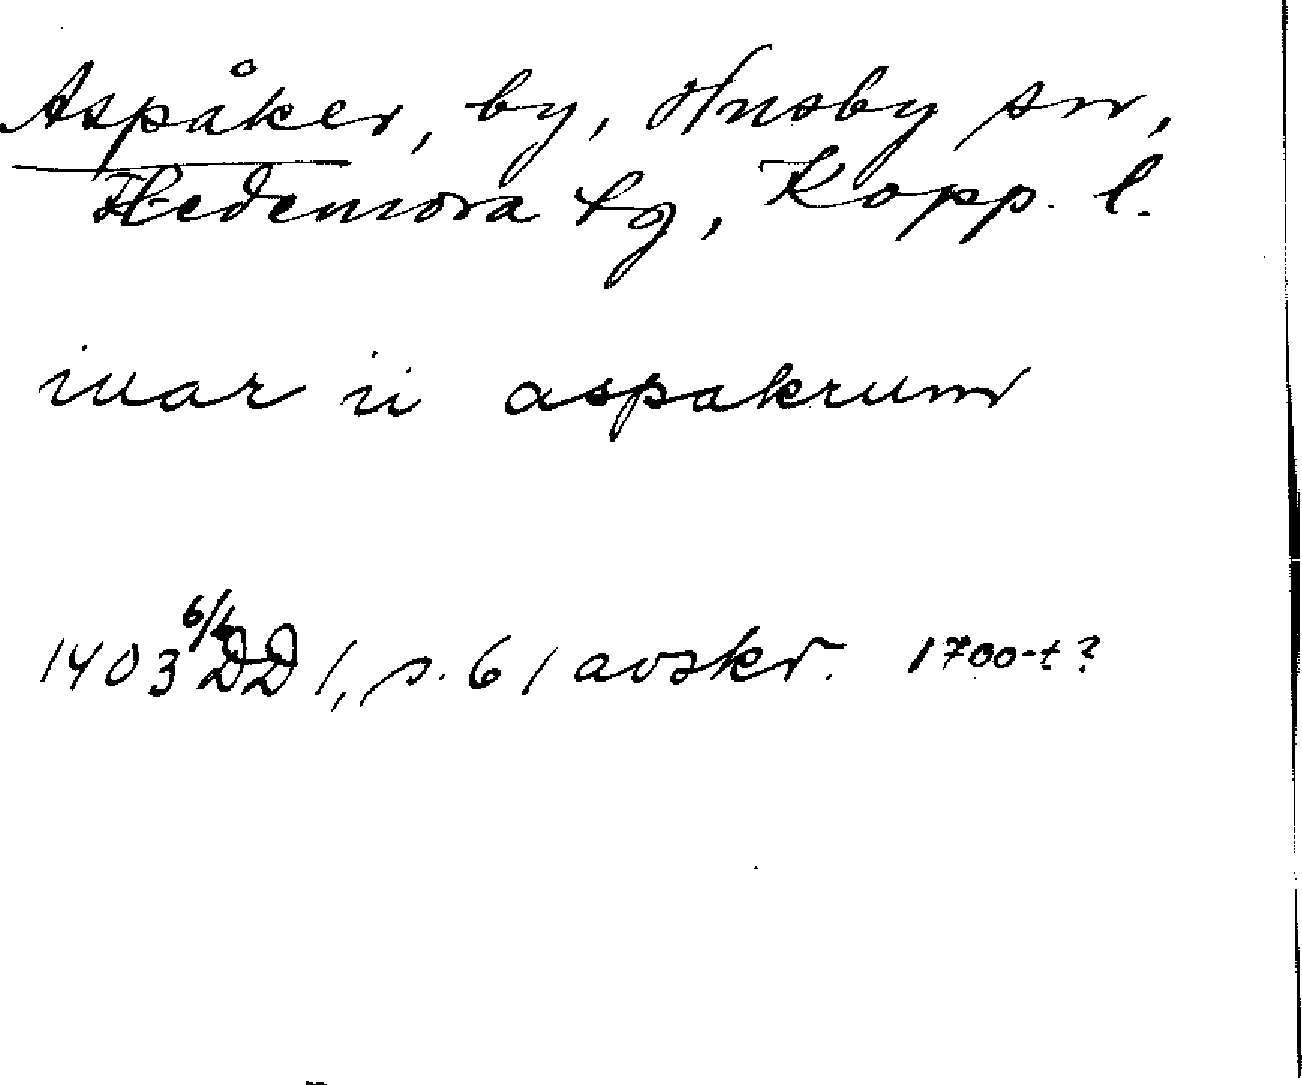 Aspåker, by, Husby sn,
Hedemora tg, Kopp. l.
iuar ii aspakrum
1403 6/4 DD 1, s. 61 avskr. 1700-t?